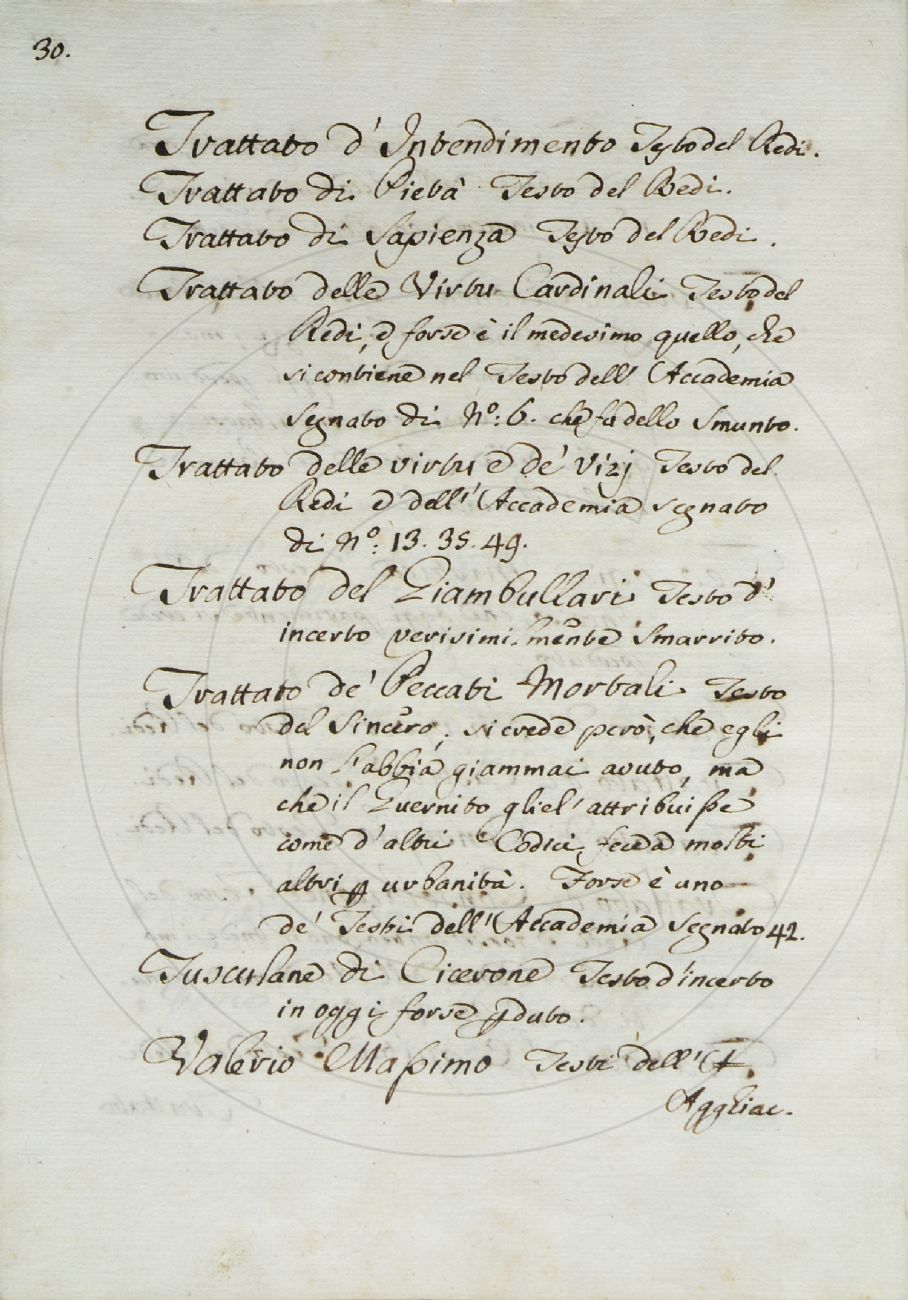 30.
Trattato d' Intendimento Testo del Redi.
Trattato di Pietà Testo del Redi.
Trattato di Sapienza Testo del Redi.
Trattato delle Virtu Cardinali Testo del
Redi, e forse è il medesimo quello, che
si contiene nel Testo dell' Accademia
segnato di Nº: 6. che fù dello Smunto.
Trattato delle virtu e de' vizj Testo del
Redi e dell' Accademia segnato
di Nº: 13. 35. 49.
Trattato del Giambullari Testo d'
incerto verisimilmente smarrito.
Trattato de' Peccati Mortali Testo
del Sincero, si crede però, che egli
non l'abbia giammai avuto, ma
che il Guernito gliel' attribuisse
come d'altri Codici fece a molti
altri urbanità. Forse è uno
de' Testi dell' Accademia segnato 42.
Tusculane di Cicerone Testo d'incerto
in oggi forse pduto.
Valerio Massimo Testi dell' A
Aggiac.